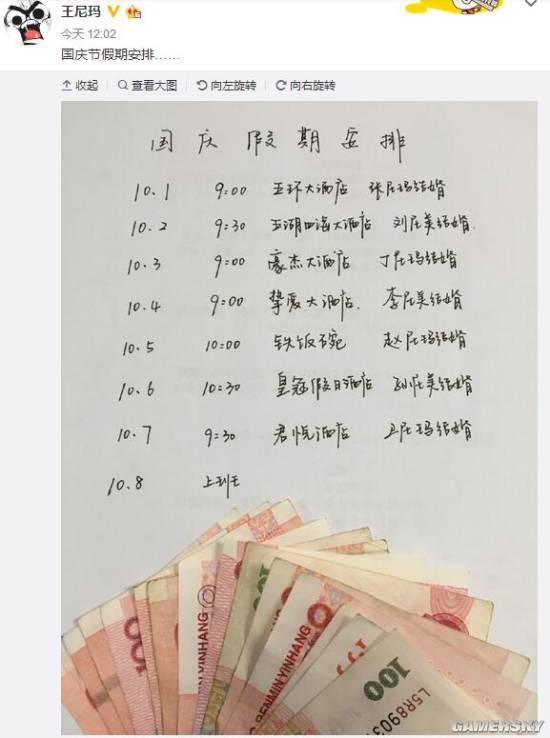 王尼玛
今天 12:02
国庆节假期安排……
收起 查看大图 向左旋转 向右旋转
国庆假期安排
10.1 9:00 五环大酒店 张尼玛结婚
10.2 9:30 五湖四海大酒店 刘尼美结婚
10.3 9:00 豪杰大酒店 丁尼玛结婚
10.4 9:00 挚爱大酒店 李尼美结婚
10.5 10:00 铁饭碗 赵尼玛结婚
10.6 10:30 皇冠假日酒店 孙尼美结婚
10.7 9:30 君悦酒店 卫尼玛结婚
10.8 上班
BENMINYINHANG
100
L5R8903
GAMERSKY